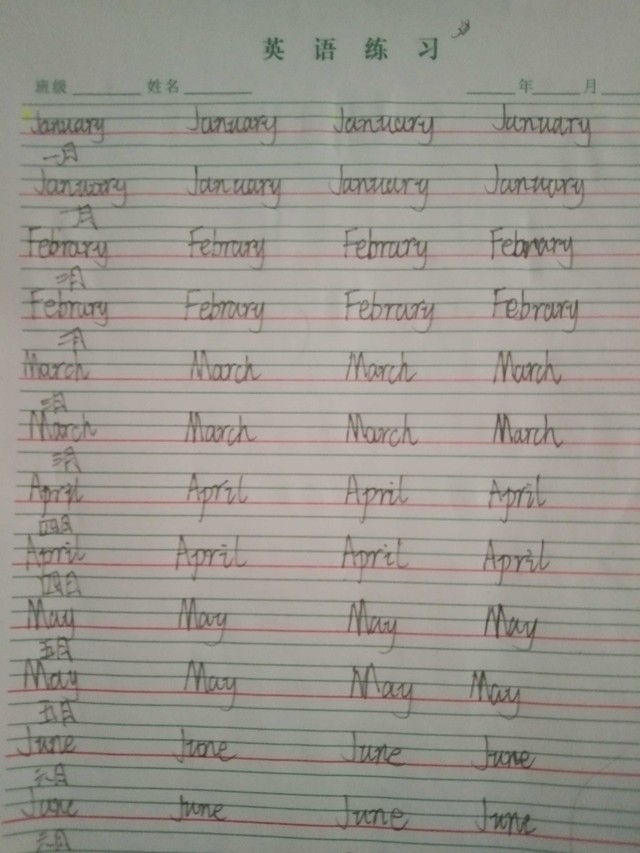 英语练习
班级 姓名 年 月
January January January January
一月
January January January January
一月
Februry Februry Februry Februry
二月
Februry Februry Februry Februry
二月
March March March March
三月
March March March March
三月
April April April April
四月
April April April April
四月
May May May May
五月
May May May May
五月
June June June June
六月
June June June June
六月